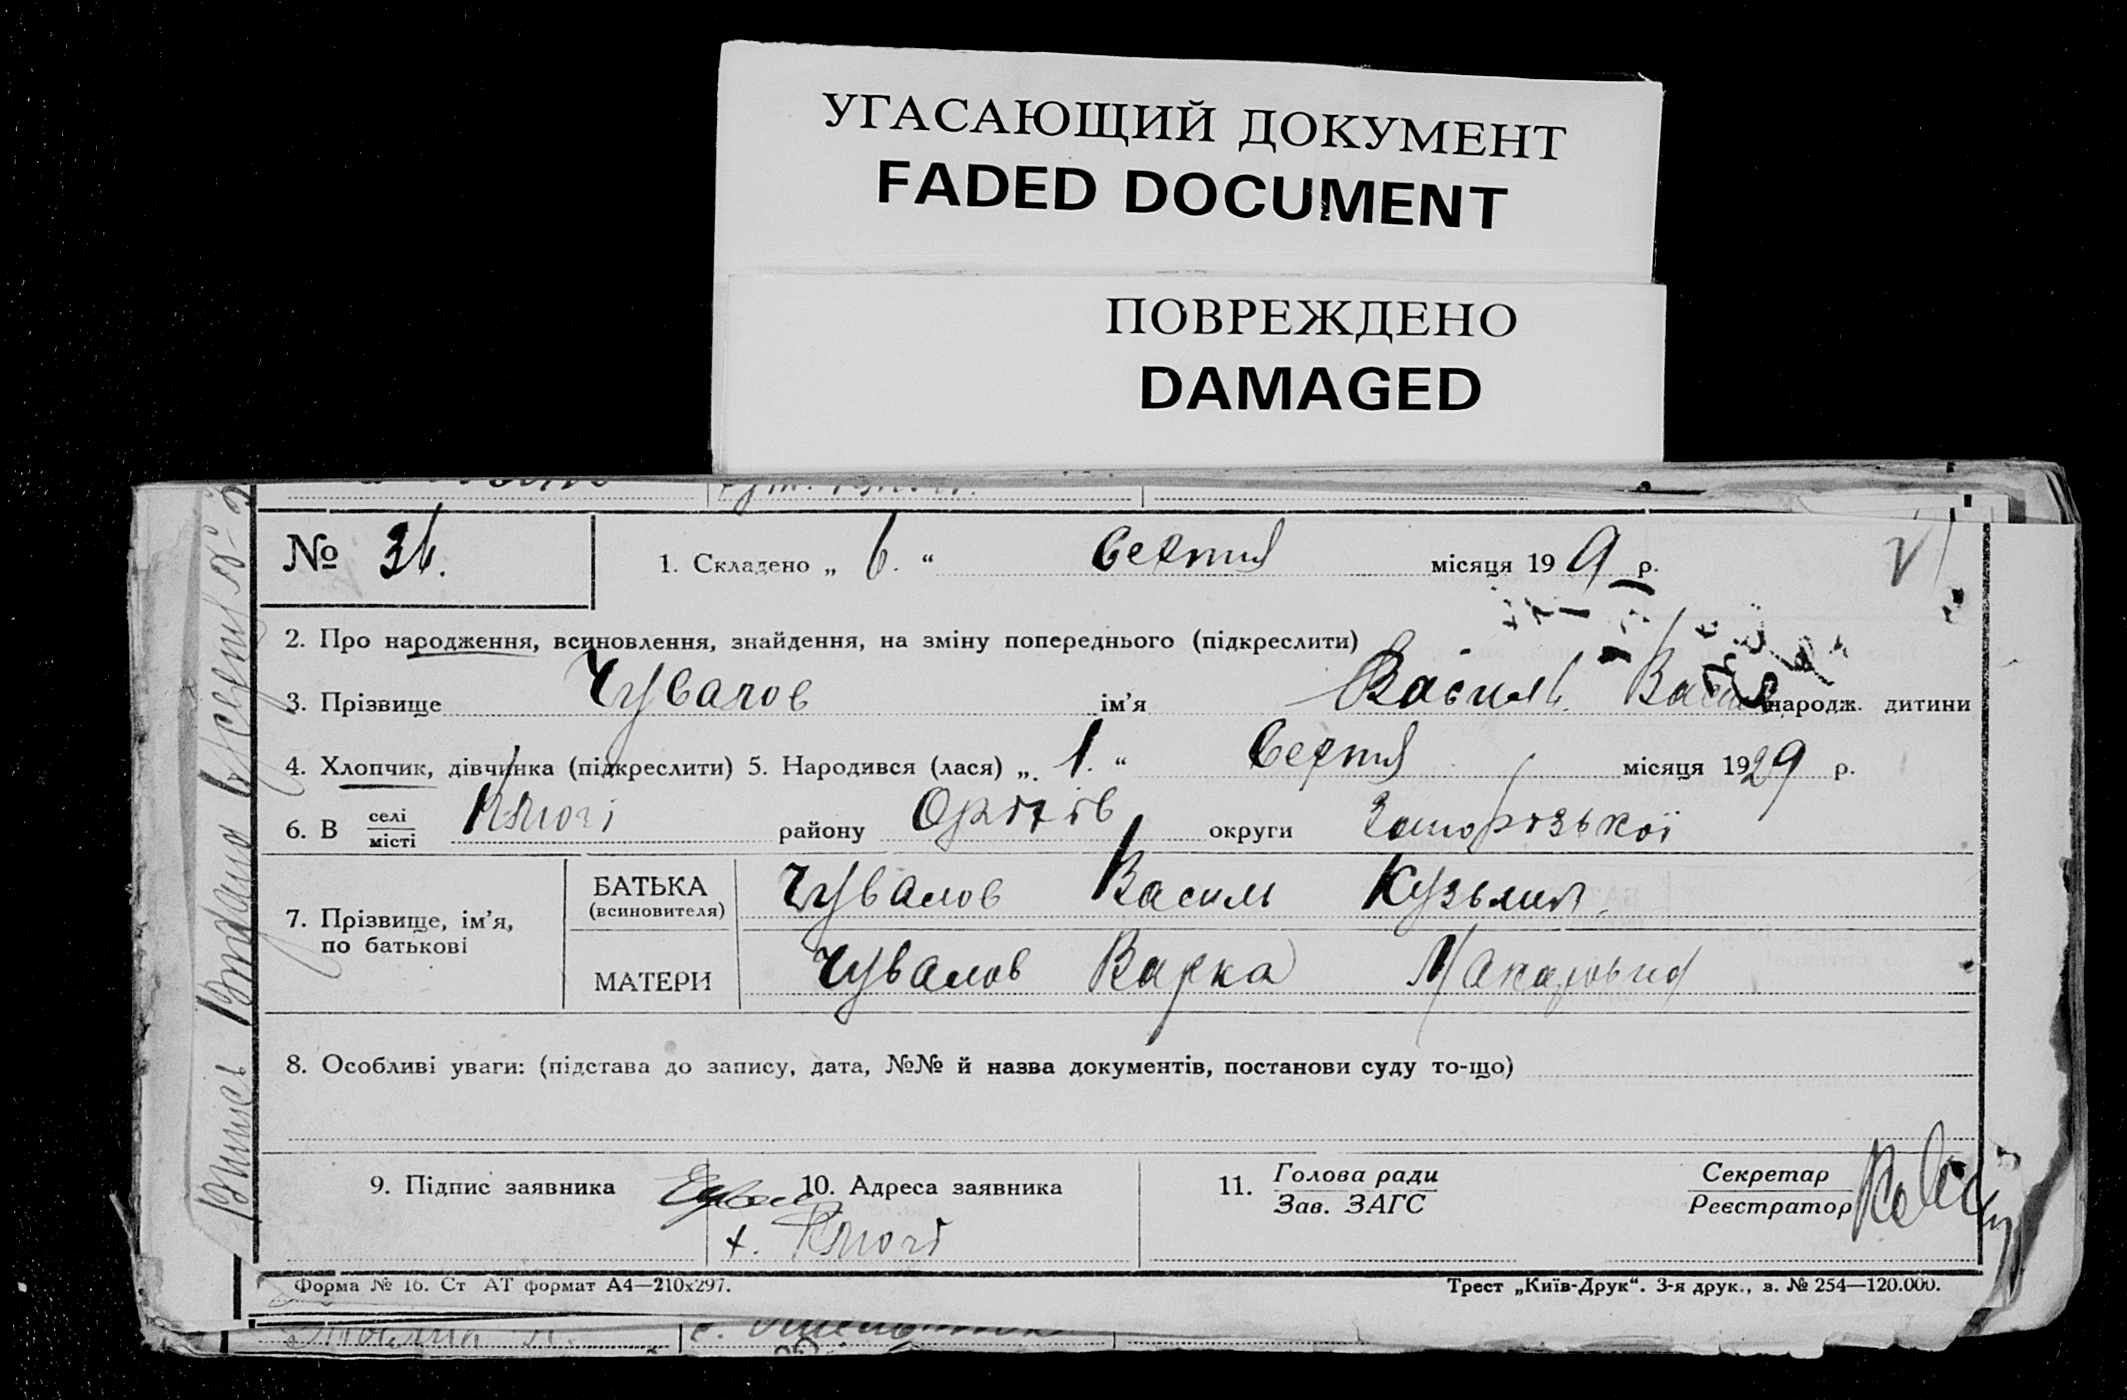 УГАСАЮЩИЙ ДОКУМЕНТ
FADED DOCUMENT
ПОВРЕЖДЕНО
DAMAGED
№ 36.
1. Складено „ 6. “ Серпня місяця 19 9 р.
2. Про народження, всиновлення, знайдення, на зміну попереднього (підкреслити)
3. Прізвище Чувалов ім’я Василь народж. дитини
4. Хлопчик, дівчинка (підкреслити) 5. Народився (лася) „ 1. “ Серпня місяця 1929 р.
6. В селі місті Ключі району Оріхів округи Запорізької
7. Прізвище, ім’я, по батькові
БАТЬКА (всиновителя) Чувалов Василь Кузьмич
МАТЕРИ Чувалов Варка Макаровна
8. Особливі уваги: (підстава до запису, дата, №№ й назва документів, постанови суду то-що)
9. Підпис заявника
10. Адреса заявника
х. Ключі
11. Голова ради
Зав. ЗАГС
Секретар
Реєстратор
Форма № 16. Ст АТ формат А4—210х297.
Трест „Київ-Друк“. 3-я друк., з. № 254—120.000.